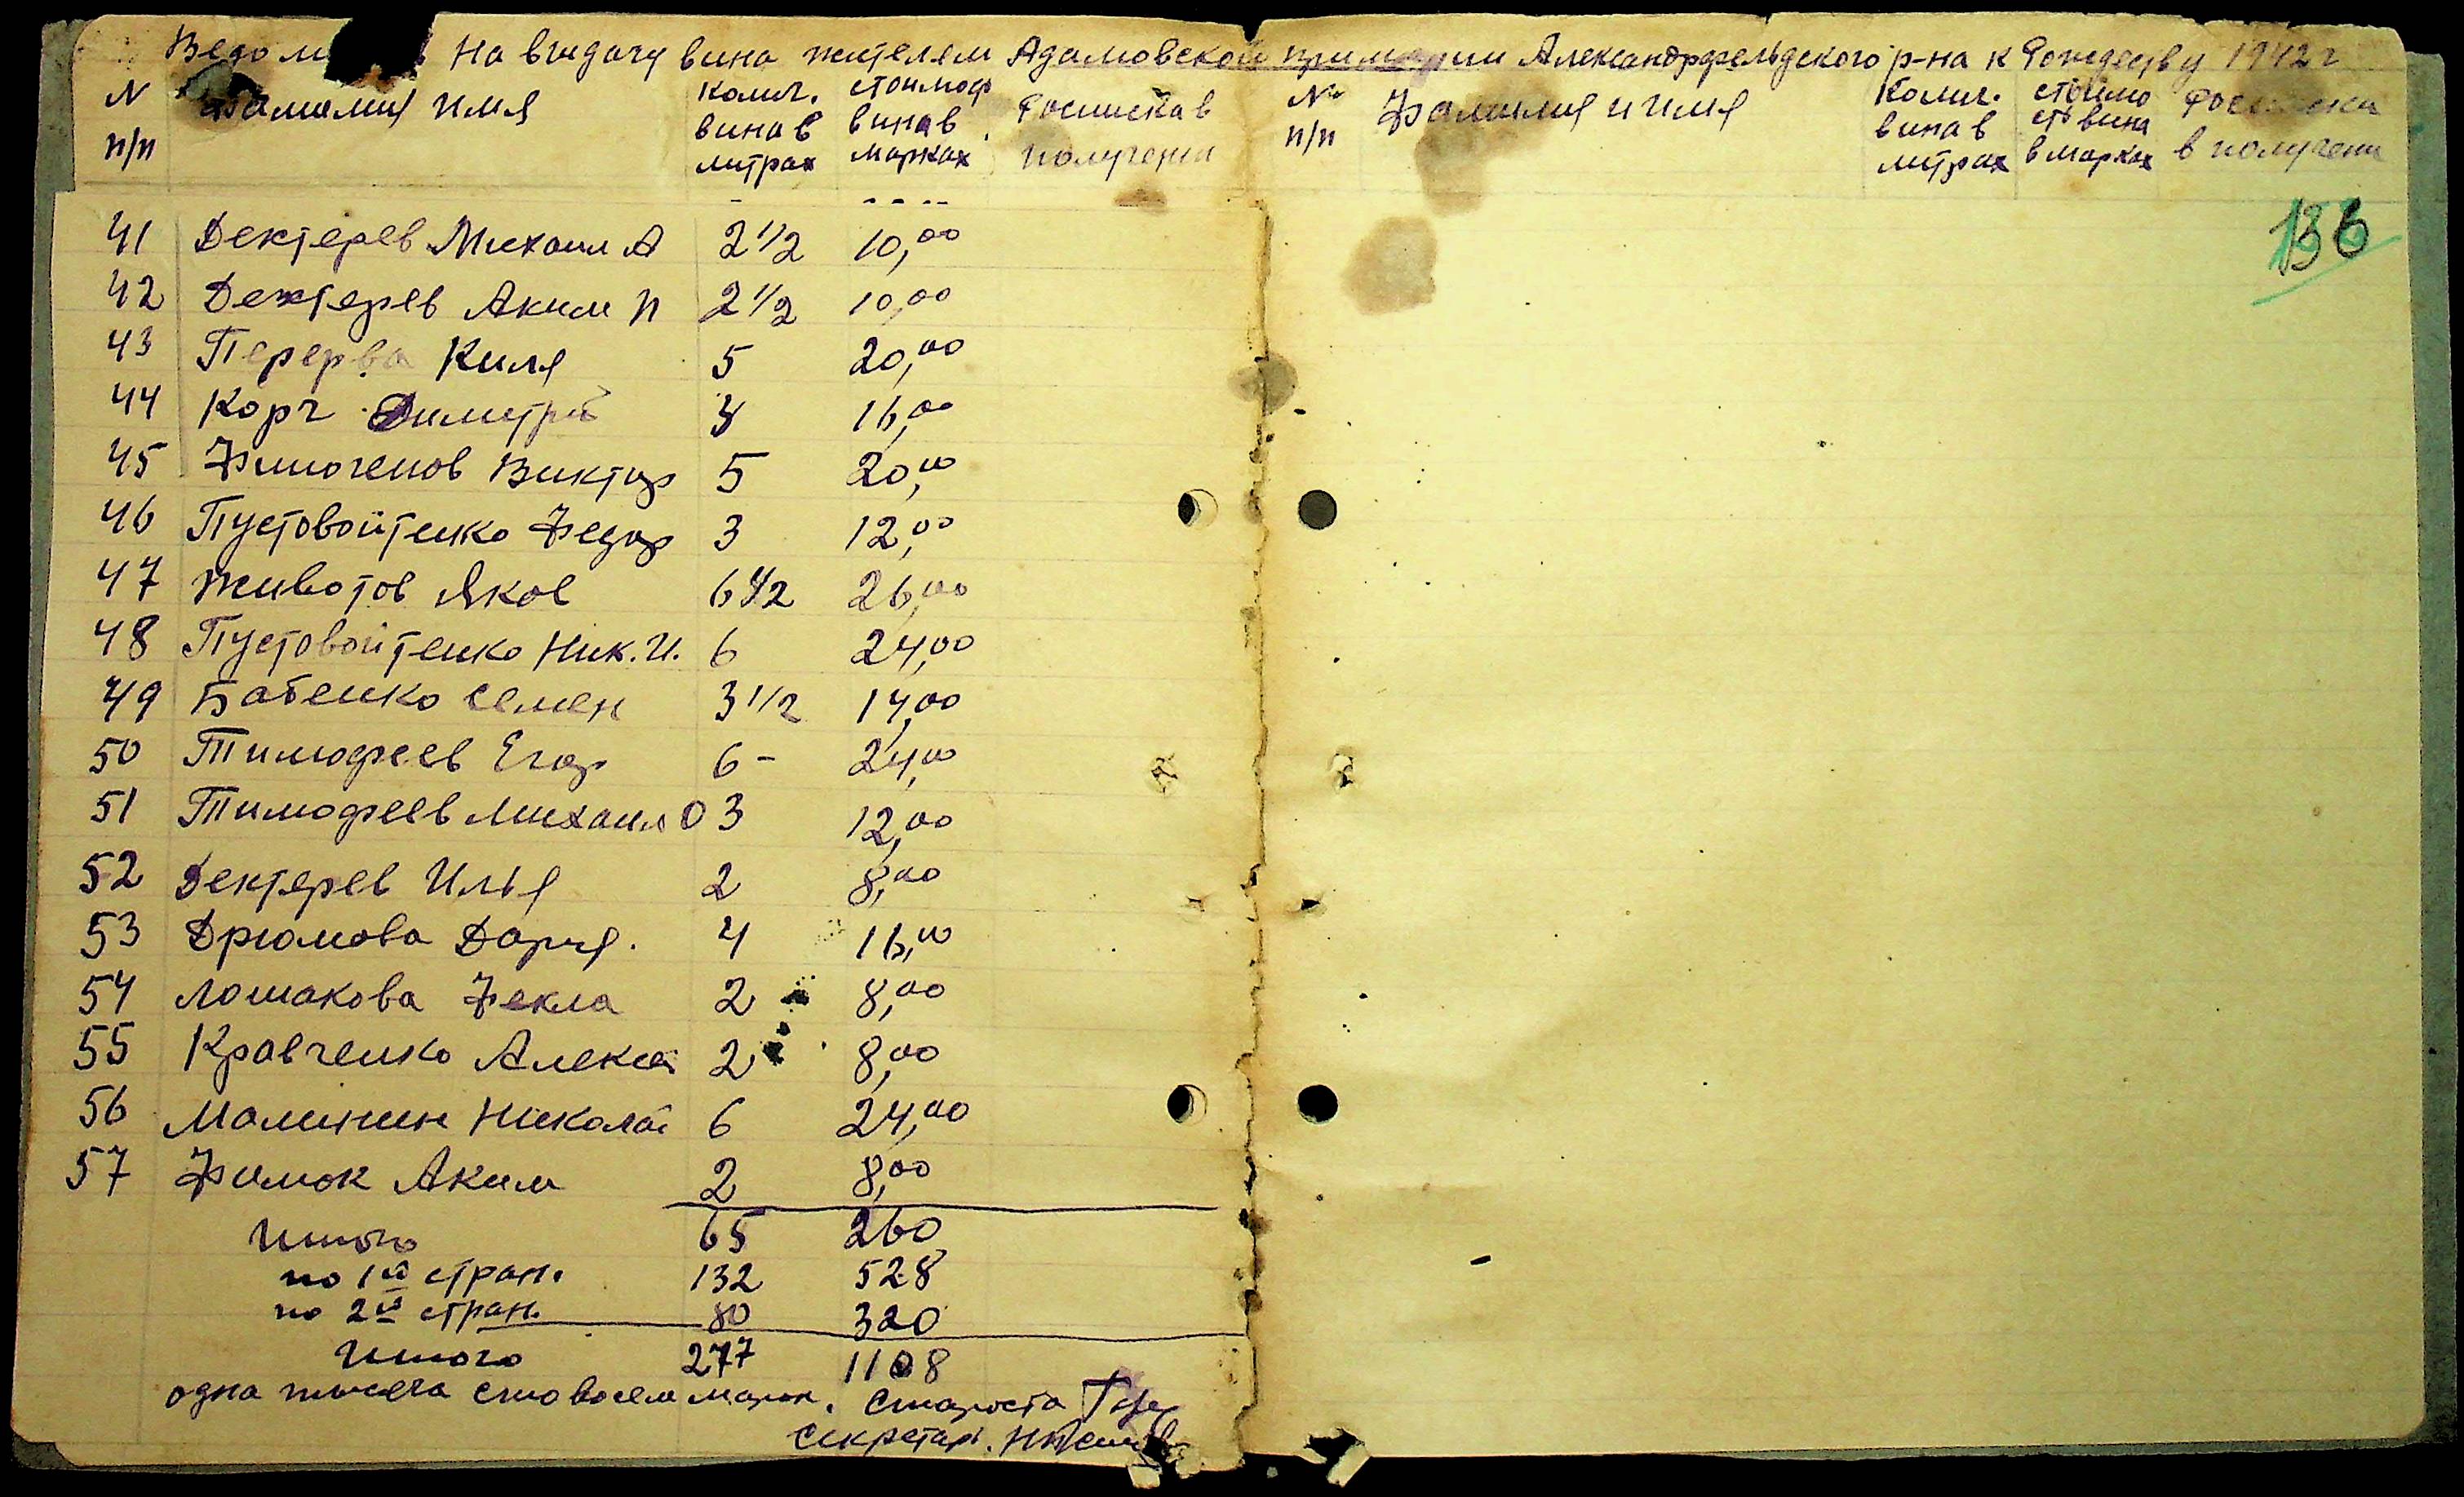 На выдачу вина жителям Адамовской примарии Александрфельдского р-на к Рождеству 1942 г
N п/п Фамилия имя колич. вина в литрах стоимость вина в марках Росписка в получении № п/п Фамилия и имя Колич. вина в литрах стоимость вина в марках Росписка в получени
136
41 Дектерев Михаил А 2 1/2 10,00
42 Дектерев Аким П 2 1/2 10,00
43 Перерва Киля 5 20,00
44 Корч Димитрий 4 16,00
45 Финогенов Виктор 5 20,00
46 Пустовойтенко Федор 3 12,00
47 Животов Яков 6 1/2 26,00
48 Пустовойтенко Ник. И. 6 24,00
49 Бабенко Семен 3 1/2 14,00
50 Тимофеев Егор 6 - 24,00
51 Тимофеев Михаил О 3 12,00
52 Дектерев Илья 2 8,00
53 Дрюмова Дария. 4 16,00
54 Лошакова Фекла 2 8,00
55 Кравченко Алексей 2 8,00
56 Малинин Николай 6 24,00
57 Фимок Аким 2 8,00
Итого 65 260
по 1й стран. 132 528
по 2й стран. 80 320
Итого 277 1108
одна тысяча сто восем марок. Староста
Секретарь.